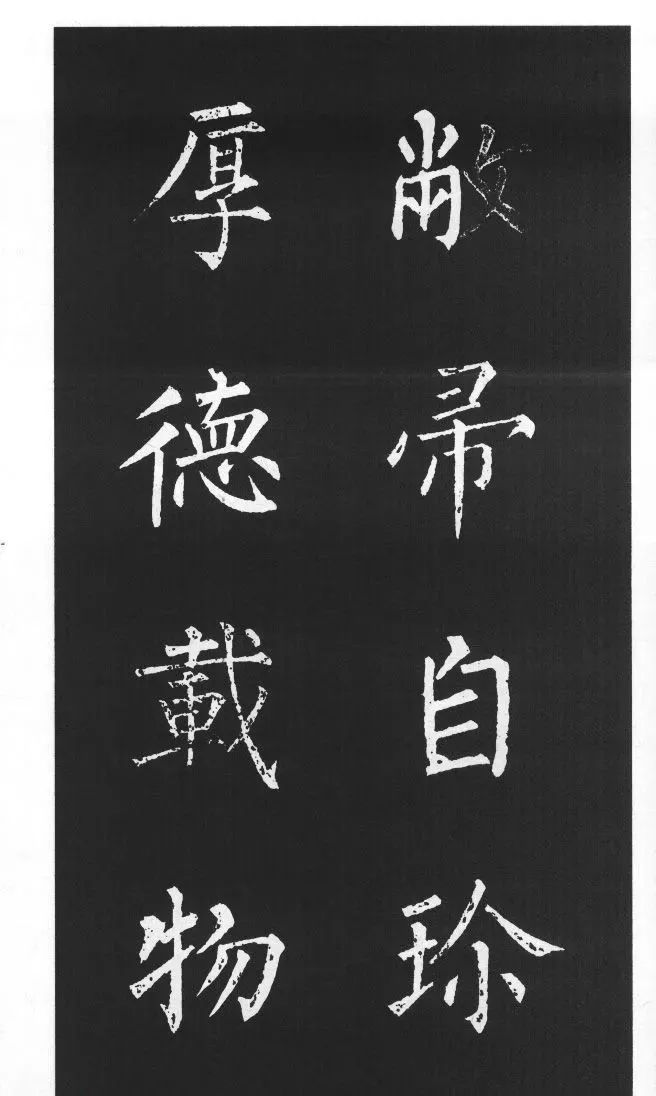 敝帚自珎
厚德載物